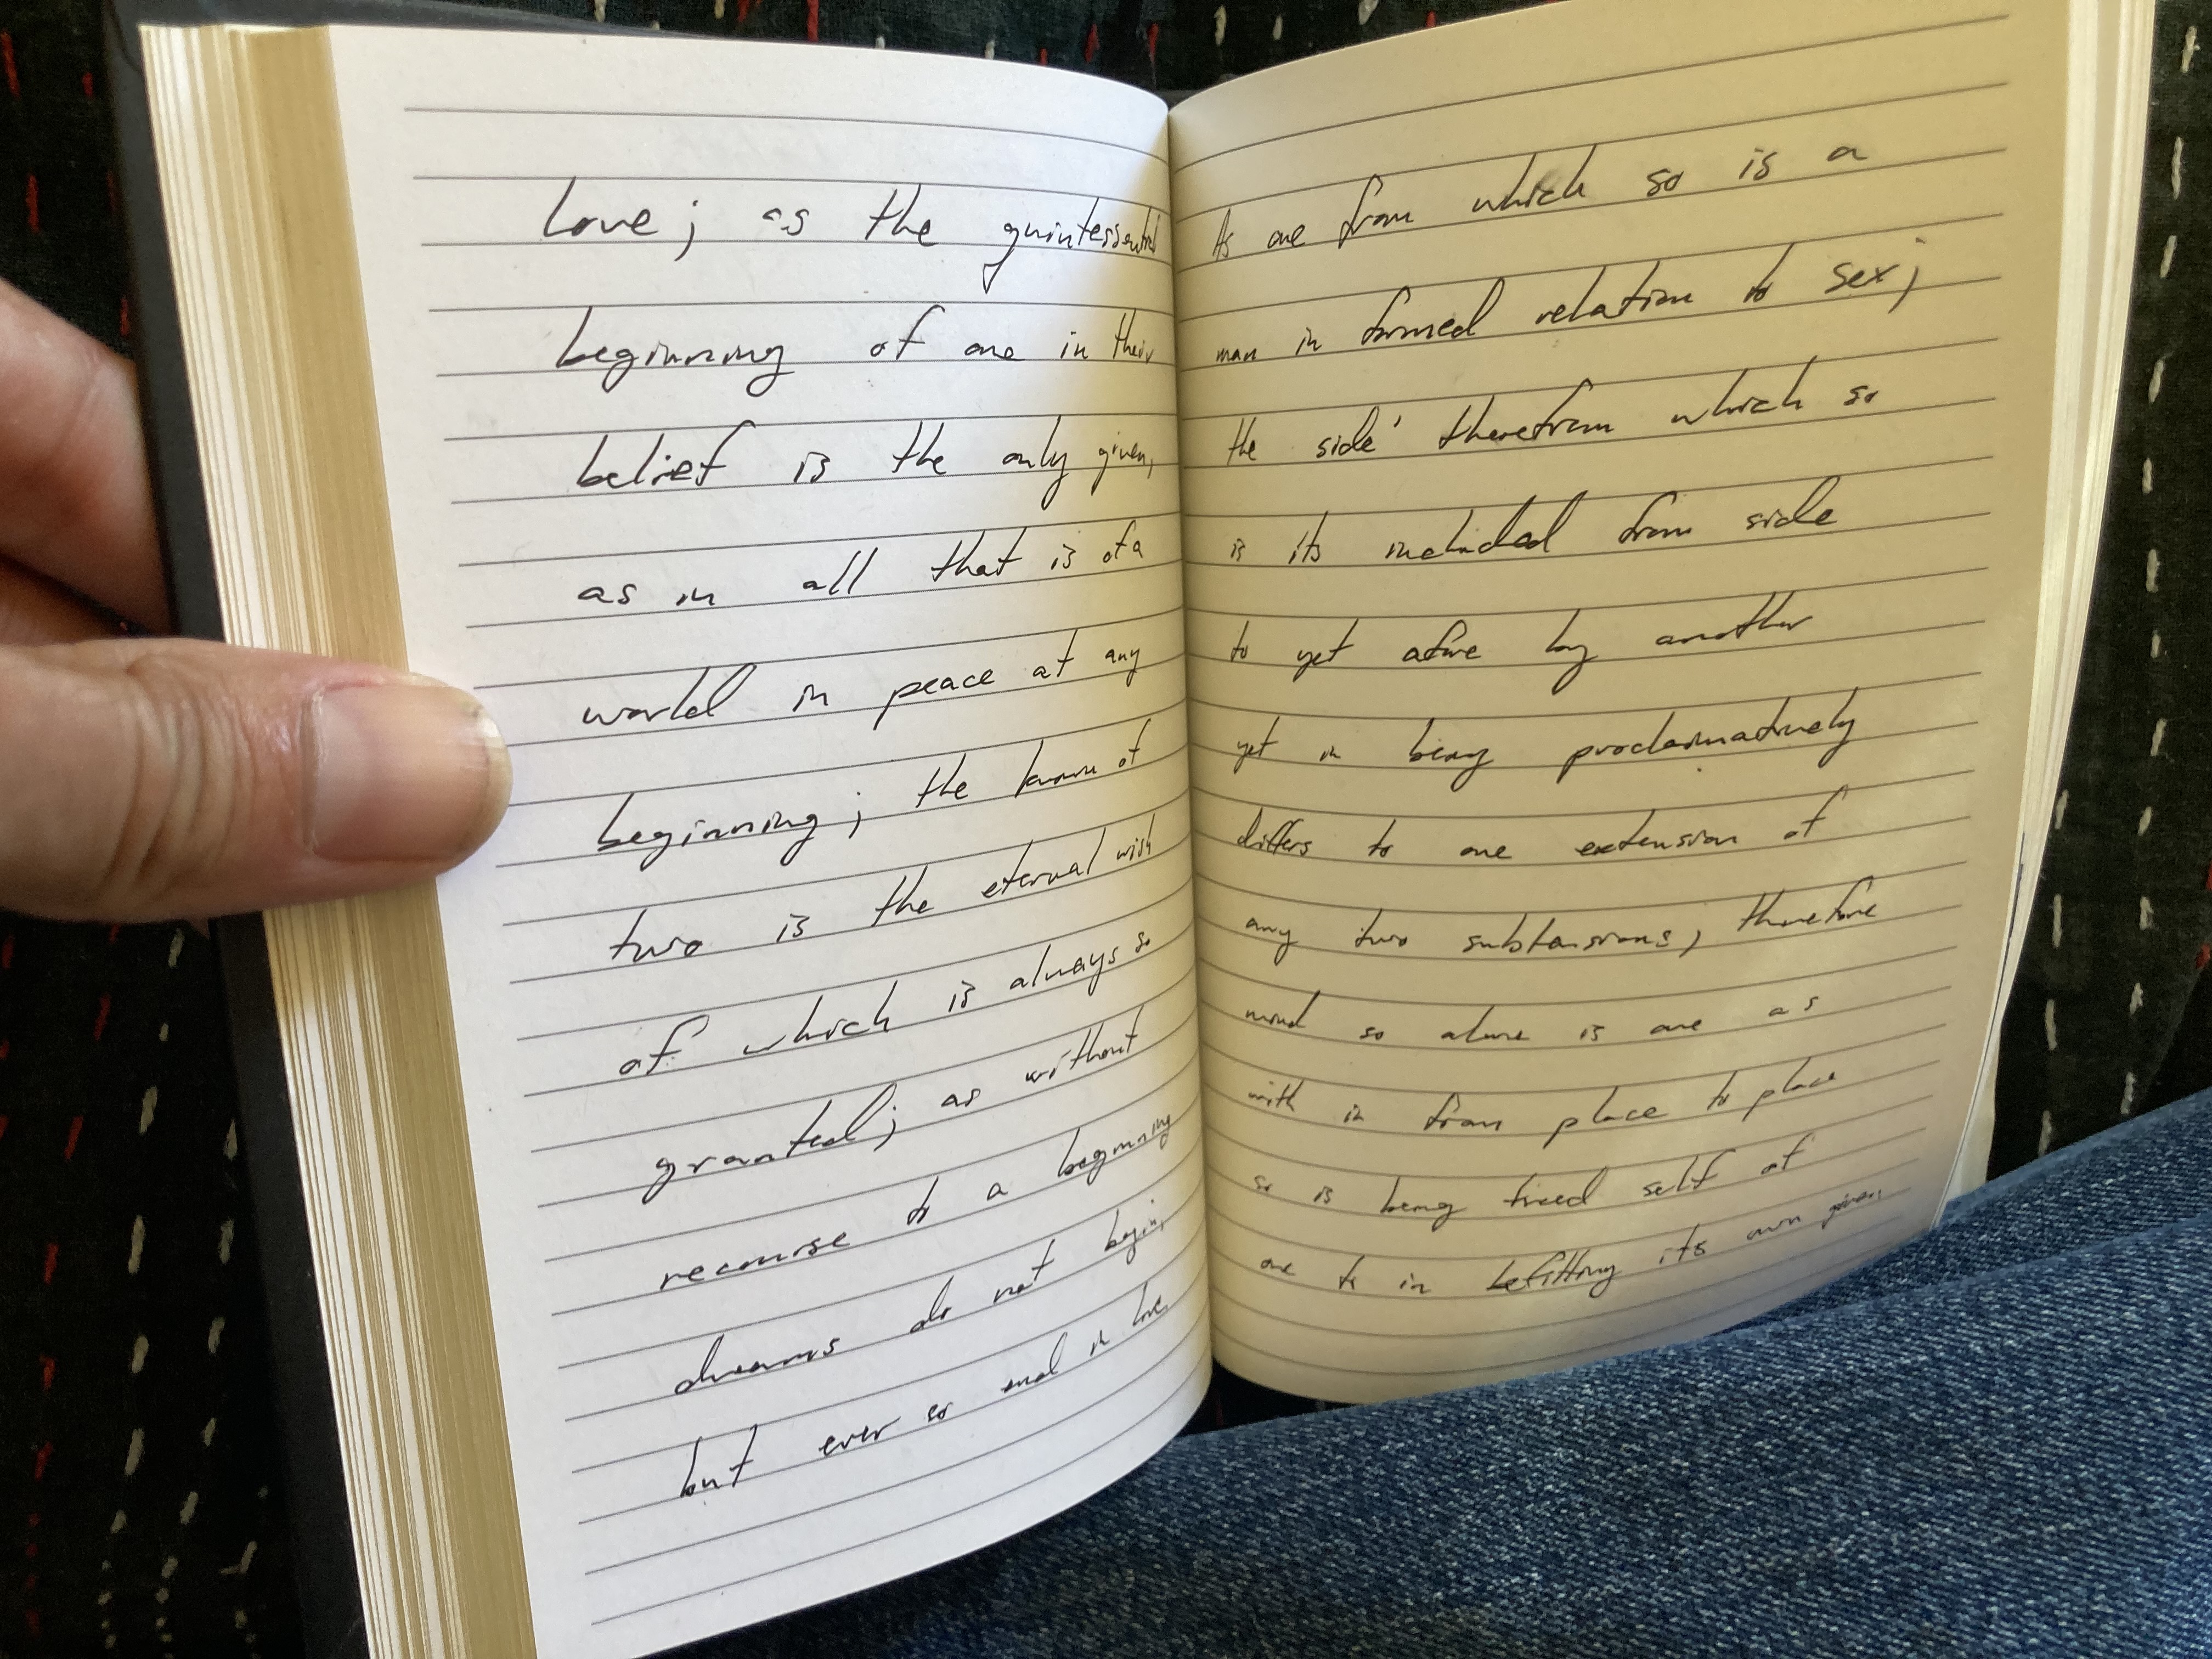 Love; as the quintessential
beginning of one in their
belief is the only given,
as in all that is of a
world in peace at any
beginning; the known of
two is the eternal wish
of which is always so
granted; as without
recourse to a beginning
dreams do not begin,
but ever so end in love.
As one from which so is a
man in formed relation to sex;
the side' therefrom which so
is its included from side
to yet afore by another
yet in being proclaimatively
differs to one extension of
any two subtensions; therefore
mind so alone is one as
with in from place to place
so is being freed self of
one to in befitting its own given.